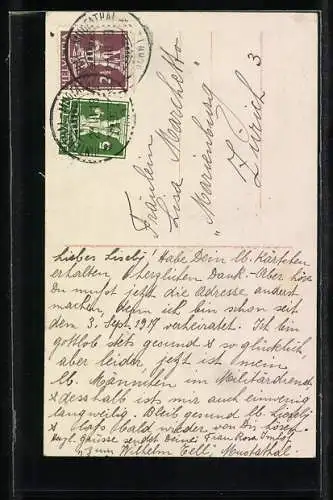 HELVETIA
2½
HELVETIA
5
Fräulein
Lisa Marchetto
„Marienburg"
Zürich 3
Liebes Liseli! Habe Dein lb. Kärtchen
erhalten, herzlichen Dank. Aber
Du mußt jetzt die Adresse anderst
machen, denn ich bin schon seit
dem 3. Sept. 1917 verheiratet. Ich bin
gottlob stets gesund & so glücklich,
aber leider, jetzt ist mein
lb. Männchen im Militärdienst
& desshalb ist mir auch ein wenig
langweilig. Bleib gesund lb. Lieseli
& laß bald wieder von Dir hören.
Grüsse sendet Deine Frau Rosa Imhof
z. Wilhelm Tell, Muotathal.